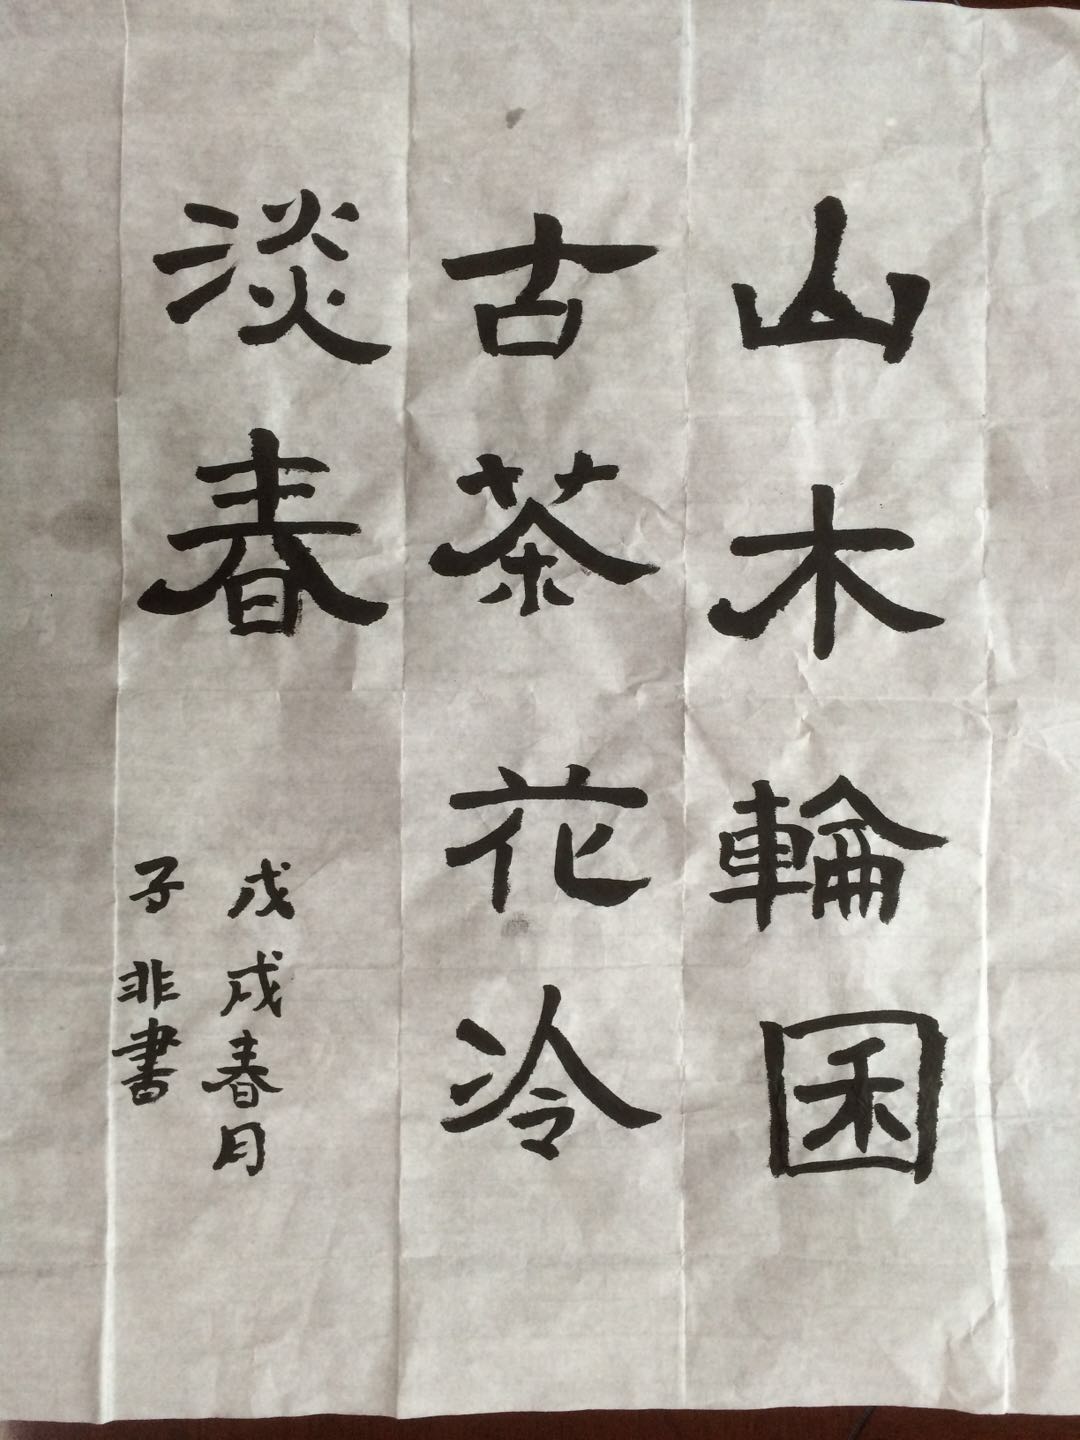 山木輪囷
古茶花冷
淡春
戊戌春月
子非書